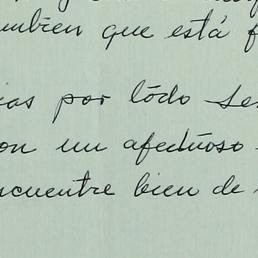 ambien que está f
ias por tōdo Se
on un afectūoso
scuentre bien de